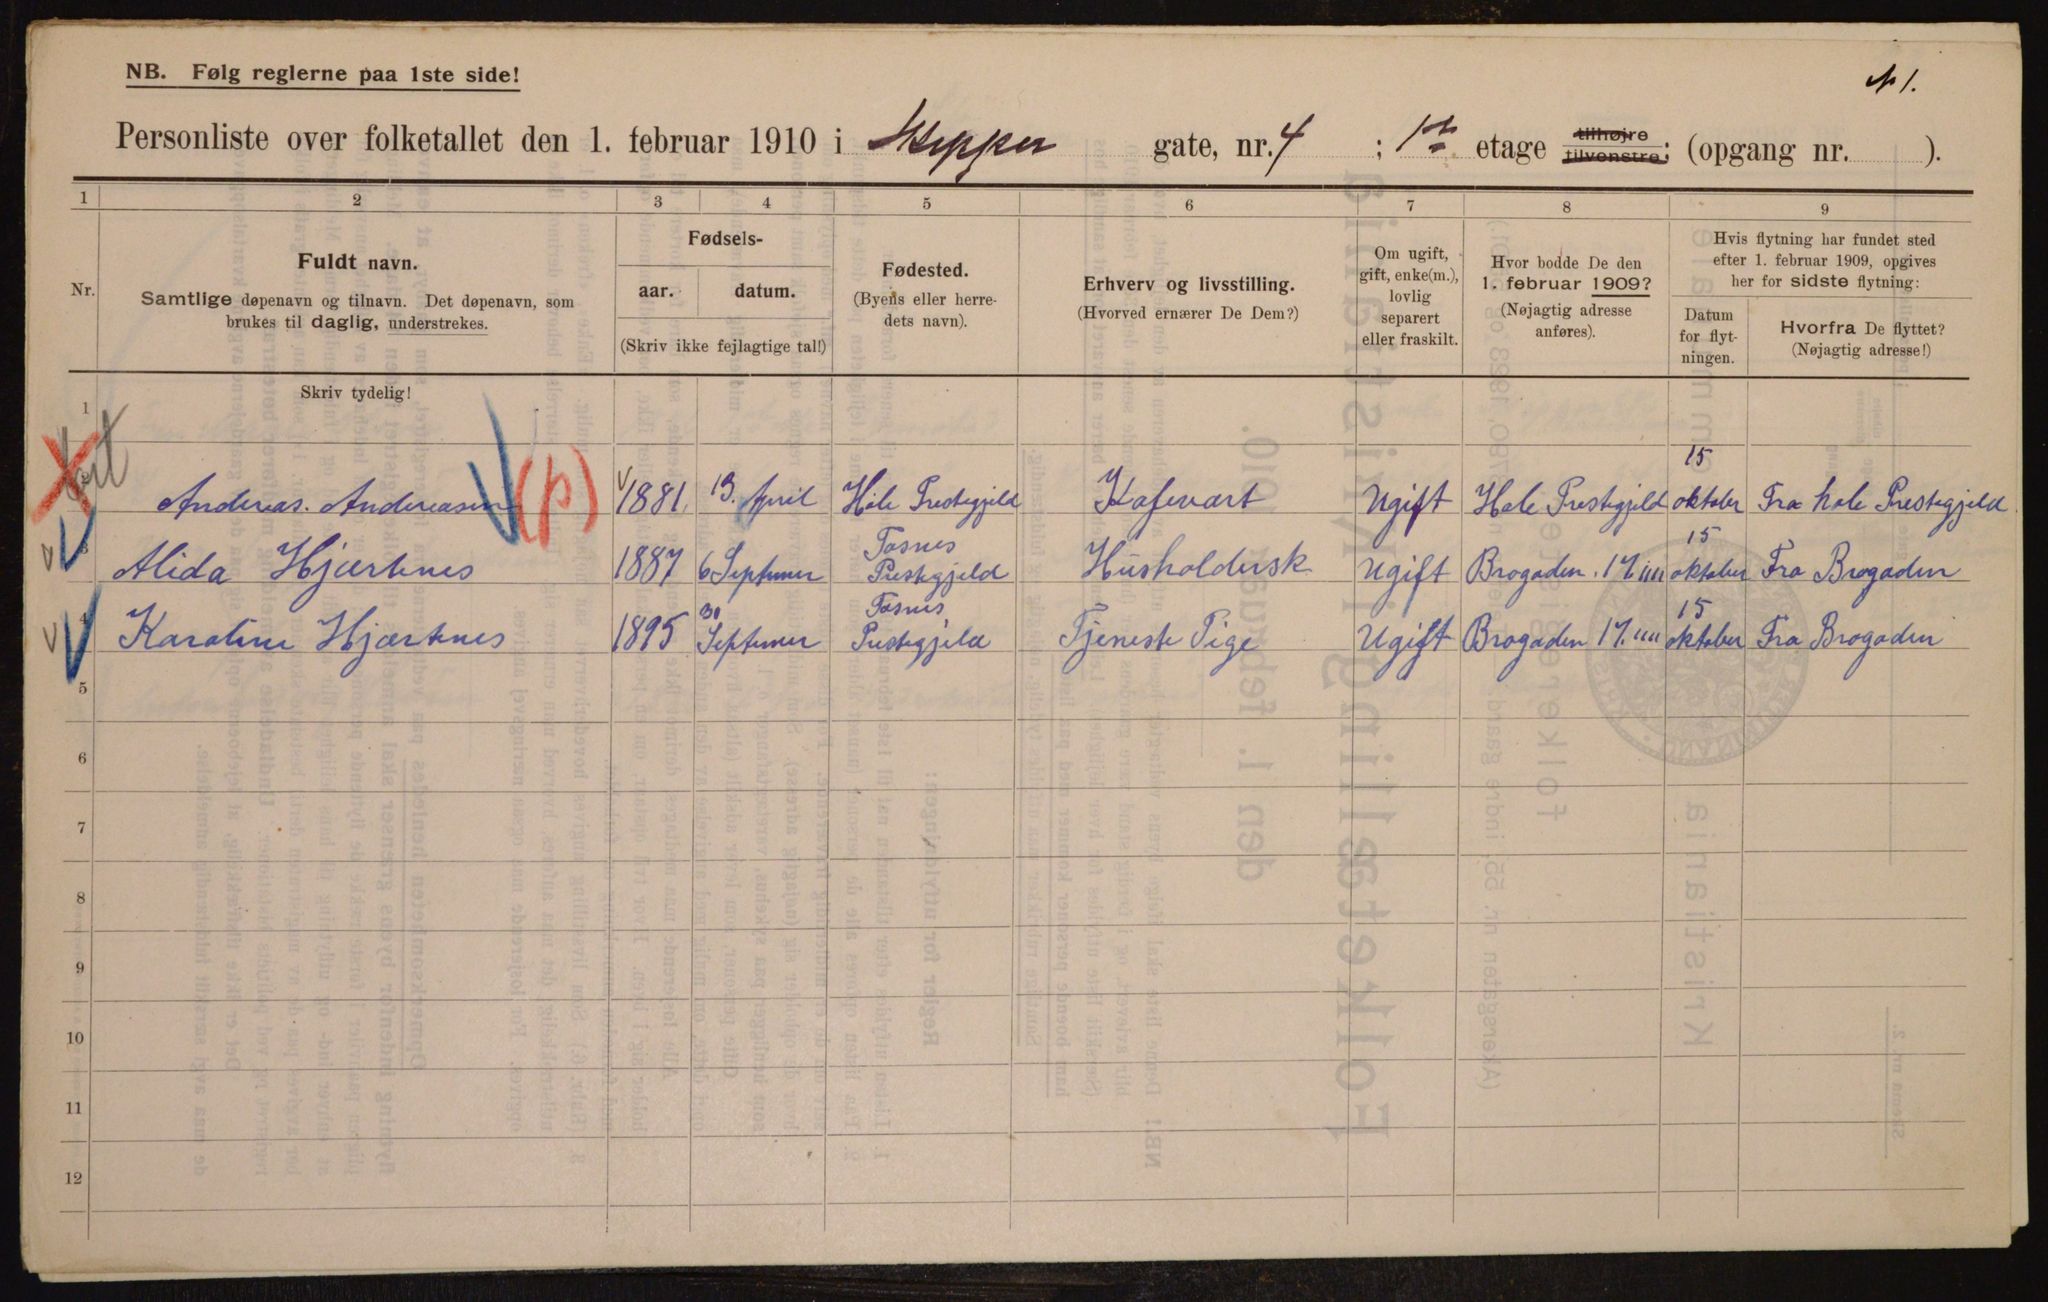 NB. Følg reglerne paa 1ste side!
N 1.
Personliste over folketallet den 1. februar 1910 i Skipper gate, nr. 4 ; 1ste etage tilhøjre tilvenstre; (opgang nr. ).
1 2 3 4 5 6 7 8 9
Nr.
Fuldt navn.
Samtlige døpenavn og tilnavn. Det døpenavn, som
brukes til daglig, understrekes.
Fødsels-
aar. datum.
(Skriv ikke fejlagtige tal!)
Fødested.
(Byens eller herre-
dets navn).
Erhverv og livsstilling.
(Hvorved ernærer De Dem?)
Om ugift,
gift, enke(m.),
lovlig
separert
eller fraskilt.
Hvor bodde De den
1. februar 1909?
(Nøjagtig adresse
anføres).
Hvis flytning har fundet sted
efter 1. februar 1909, opgives
her for sidste flytning:
Datum
for flyt-
ningen.
Hvorfra De flyttet?
(Nøjagtig adresse!)
Skriv tydelig!
1
Andreas. Andreasen (p) 1881, 13. April Hole Prestegjeld Kafevært Ugift Hole Prestegjeld 15 oktober Fra hole Prestegjeld
3 Alida Hjærtnes 1887 6 Septemer Prestegjeld Husholdersk Ugift Brogaden 17 IIII 15 oktober Fra Brogaden
4 Karoline Hjærtnes 1895 30 Septemer Prestegjeld Tjeneste Pige Ugift Brogaden 17. IIII 15 oktober Fra Brogaden
5
6
7
8
9
10
11
12